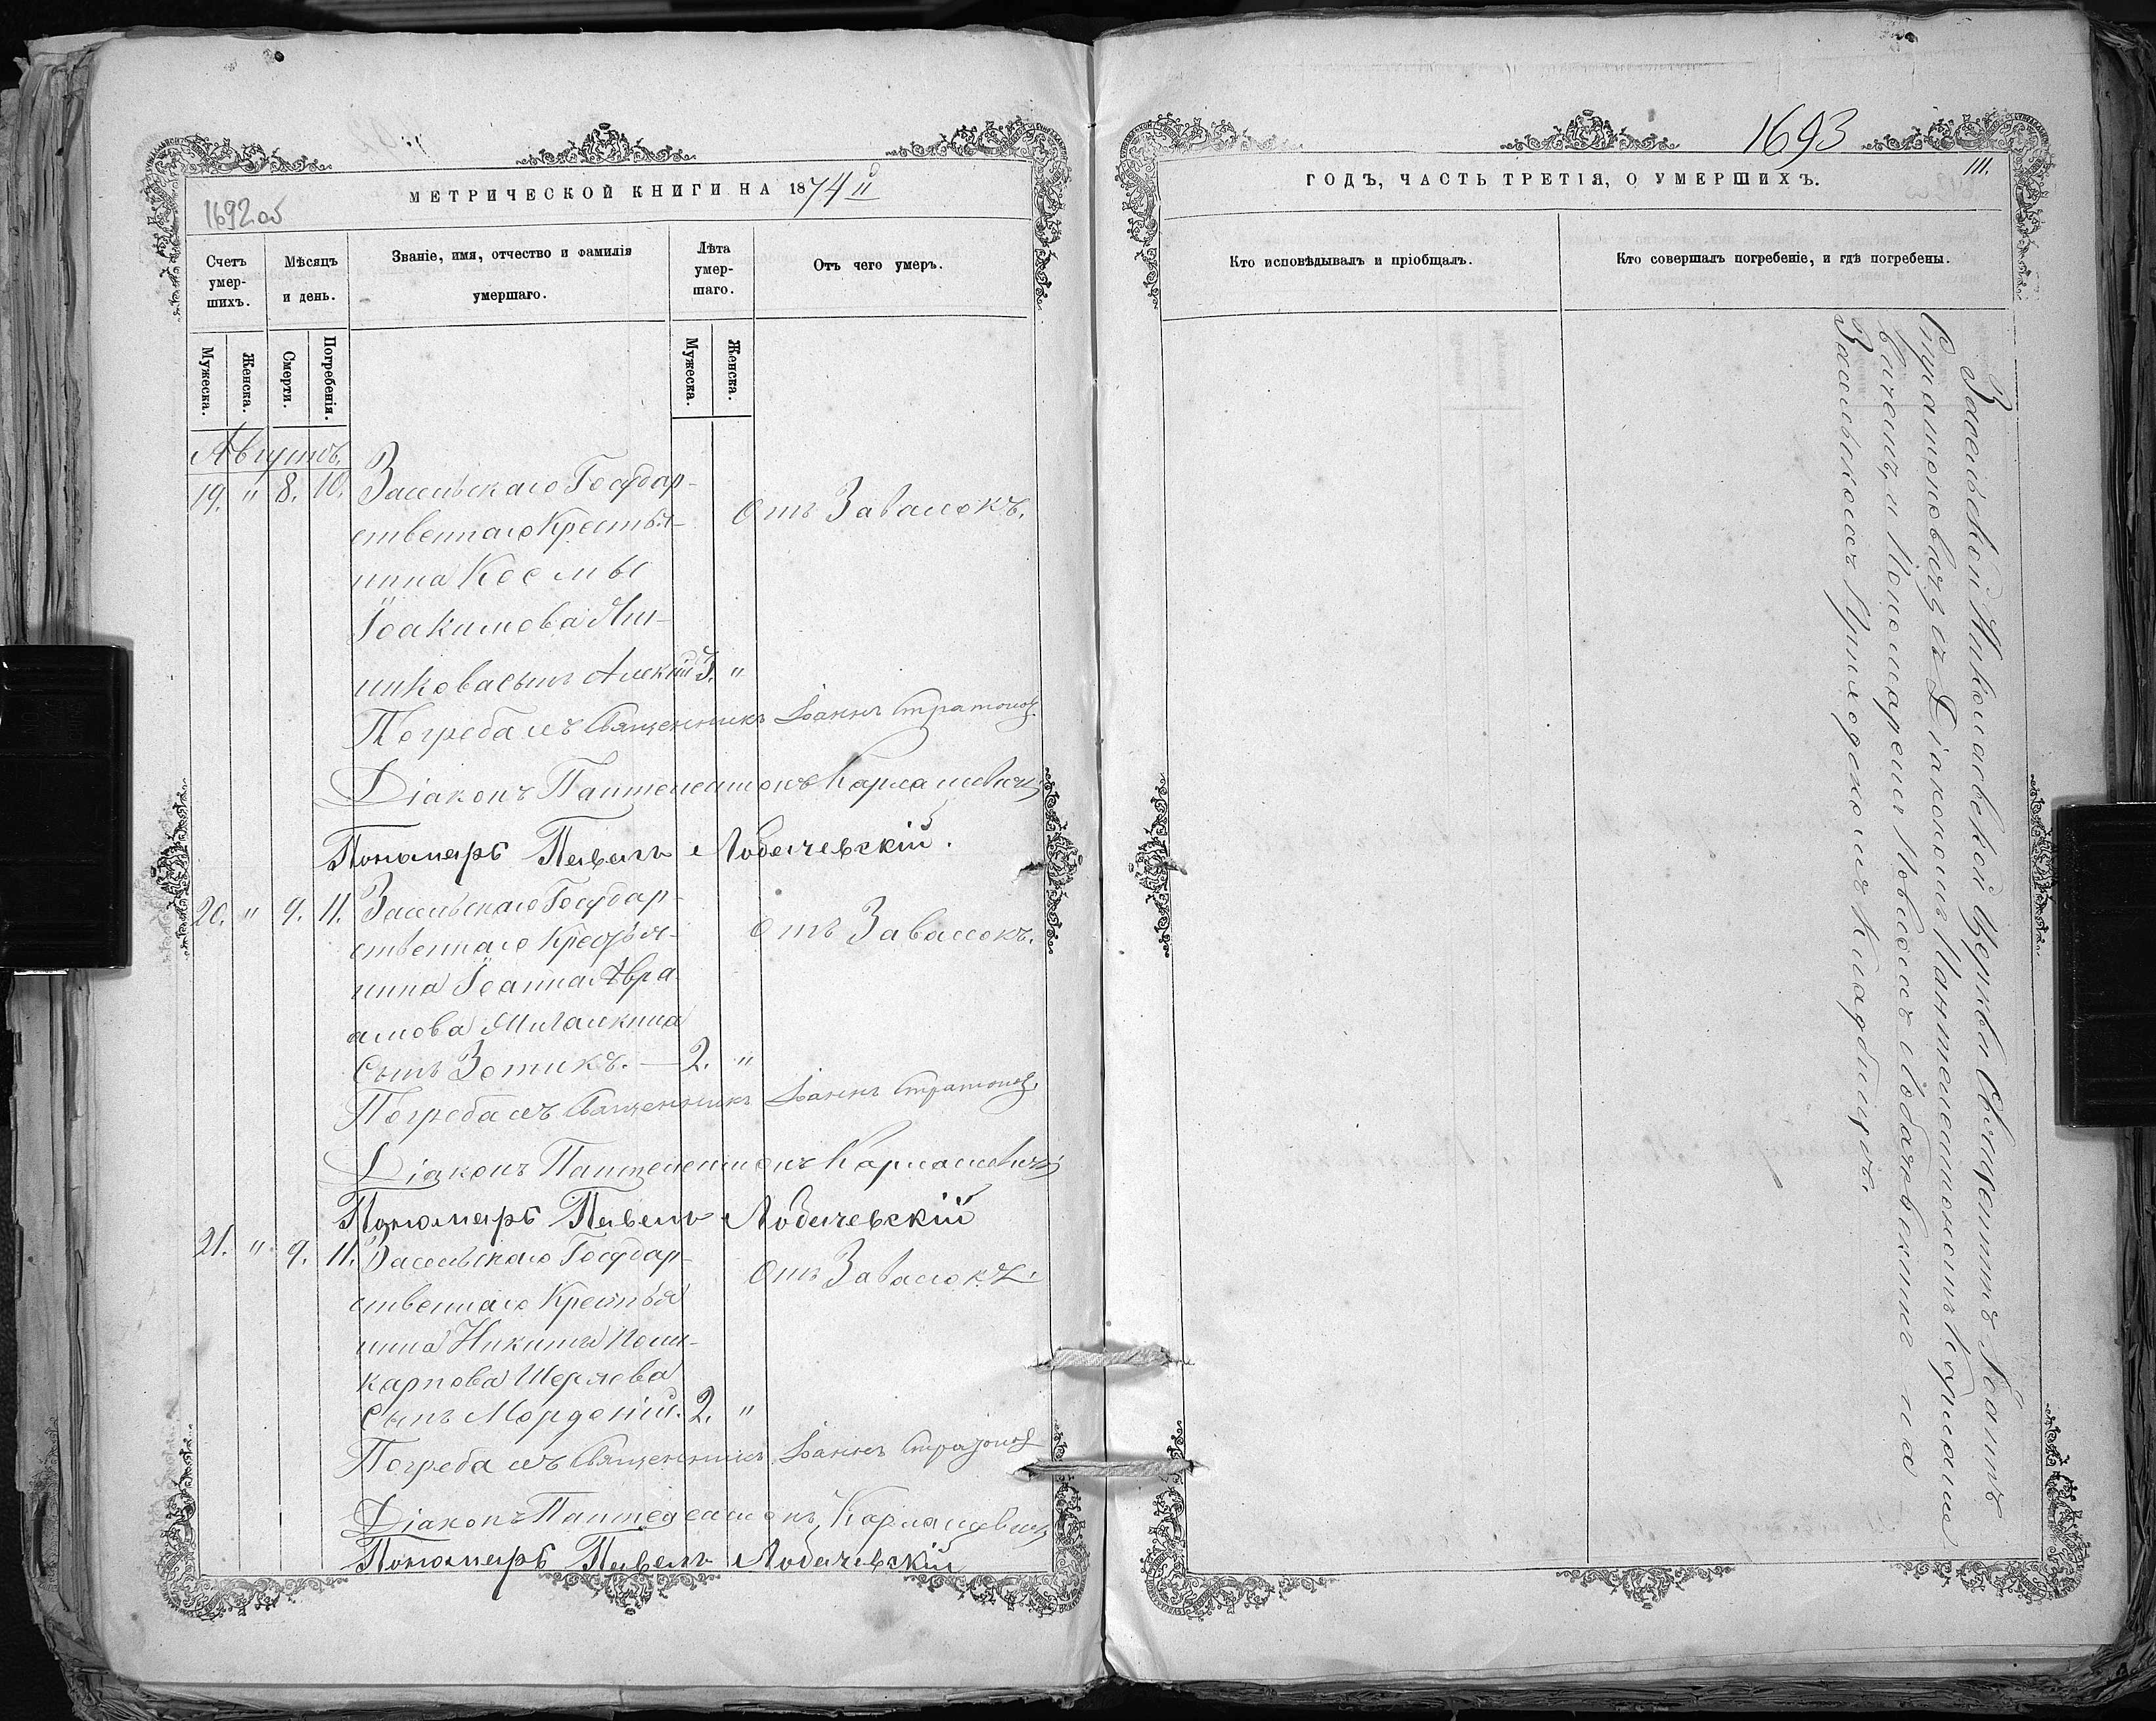 МЕТРИЧЕСКОЙ КНИГИ НА 1874
1692 об
Счетъ умер-шихъ.
Мѣсяцъ и день.
Званіе, имя, отчество и фамилія умершаго.
Лѣта умер-шаго.
Отъ чего умеръ.
Мужеска.
Женска.
Смерти.
Погребенія.
Мужеска.
Женска.
Августъ.
19. " 8. 10. Засельскаго Государ-
ственнаго Крестья-
нина Космы
Іоакимова
сынъ Алексій 3. "
Отъ Завалокъ.
Погребалъ Священникъ Іоаннъ Стратонов
Діаконъ Пантелеимонъ
Пономарь Павелъ Лобачевскій.
20. " 9. 11. Засельскаго Государ-
ственнаго Крестья-
нина Іоанна Авра-
амова
Сынъ Зотикъ. — 2. "
Отъ Завалокъ.
Погребалъ Священникъ Іоаннъ Стратонов
Діаконъ Пантелеимонъ
Пономарь Павелъ Лобачевскій
21. " 9. 11. Засельскаго Государ-
ственнаго Крестья
нина Никиты Поли-
карпова
Сынъ Мардоній. 2. "
Отъ Завалокъ.
Погребалъ Священникъ Іоаннъ Стратонов
Діаконъ Пантелеимонъ
Пономарь Павелъ Лобачевскій
1693
111.
ГОДЪ, ЧАСТЬ ТРЕТІЯ, О УМЕРШИХЪ.
Кто исповѣдывалъ и пріобщалъ.
Кто совершалъ погребеніе, и гдѣ погребены.
Засельской Николаевской Церкви Священникъ Іоаннъ
съ Діакономъ Пантелеимономъ
и Пономаремъ Павломъ Лобачевскимъ на
Засельскомъ Приходскомъ Кладбищѣ.